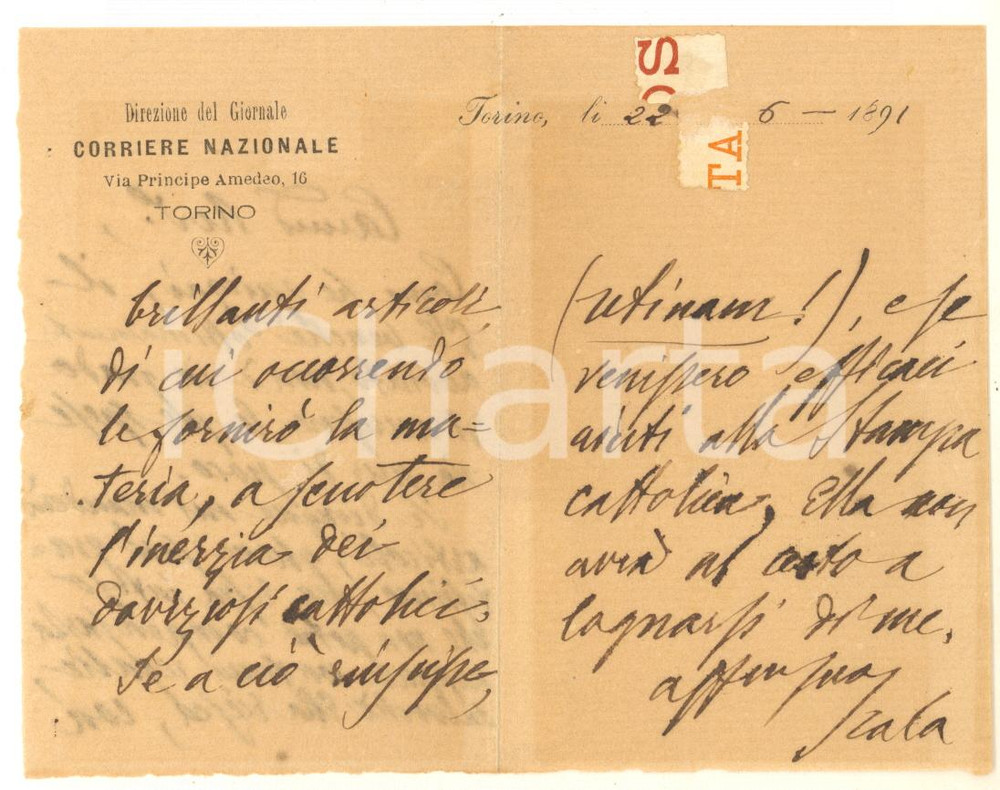 Direzione del Giornale
CORRIERE NAZIONALE
Via Principe Amedeo, 16
TORINO
Torino, li 22 6 — 1891
OS
TA
brillanti articoli,
di cui occorrendo
le fornirò la ma=
teria, a scuotere
l'inerzia dei
doviziosi cattolici.
Se a ciò riuscisse,
(utinam!), e se
venissero efficaci
aiuti alla Stampa
cattolica, Ella non
avrà al certo a
lagnarsi di me.
Scala
iCharta